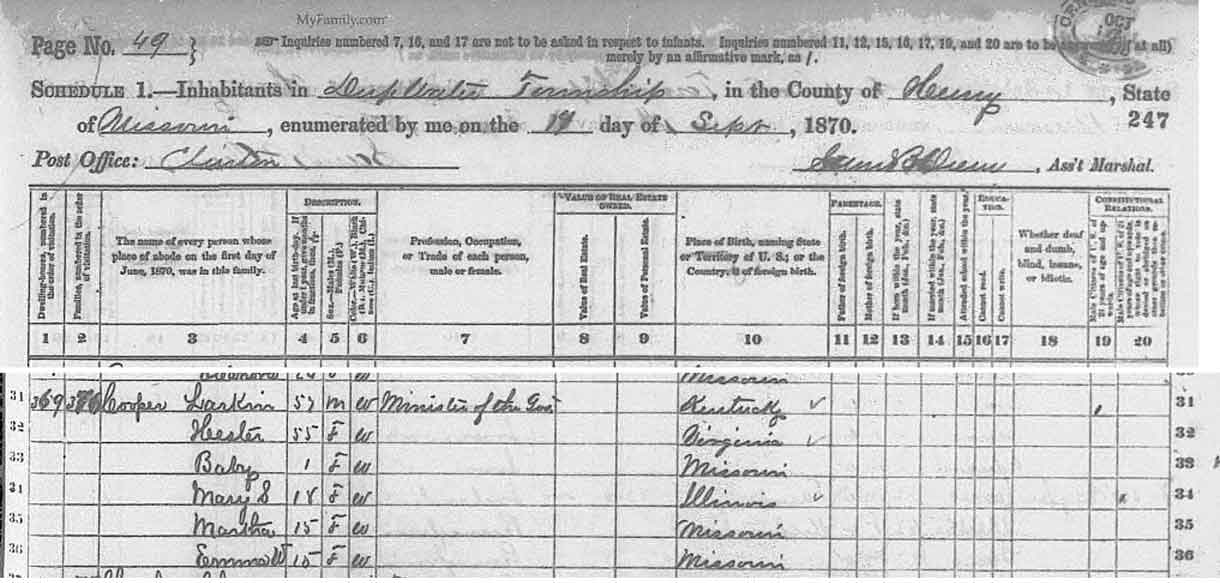 MyFamily.com
Page No. 49 } Inquiries numbered 7, 16, and 17 are not to be asked in respect to infants. Inquiries numbered 11, 12, 15, 16, 17, 19, and 20 are to be answered (if at all)
merely by an affirmative mark, as /.
OCT
SCHEDULE 1.—Inhabitants in Deepwater Township, in the County of Henry, State
of Missouri, enumerated by me on the 19 day of Sept, 1870. 247
Post Office: Clinton , Ass't Marshal.
DESCRIPTION. VALUE OF REAL ESTATE OWNED. PARENTAGE. EDUCATION. CONSTITUTIONAL RELATIONS.
Dwelling-houses, numbered in the order of visitation.
Families, numbered in the order of visitation.
The name of every person whose place of abode on the first day of June, 1870, was in this family.
Age at last birth-day.
Sex.—Males (M.), Females (F.)
Profession, Occupation, or Trade of each person, male or female.
Value of Real Estate.
Value of Personal Estate.
Place of Birth, naming State or Territory of U. S.; or the Country, if of foreign birth.
Father of foreign birth.
Mother of foreign birth.
If born within the year, state month (Jan., Feb., &c.)
If married within the year, state month (Jan., Feb., &c.)
Attended school within the year.
Cannot read.
Cannot write.
Whether deaf and dumb, blind, insane, or idiotic.
1 2 3 4 5 6 7 8 9 10 11 12 13 14 15 16 17 18 19 20
Missouri
31 369 Cooper Larkin 57 M W Minister of the Gos Kentucky 31
32 Hester 55 F W Virginia 32
33 Baby 1 F W Missouri 33
34 Mary S 18 F W Illinois 34
35 Martha 15 F W Missouri 35
36 Emma W 15 F W Missouri 36